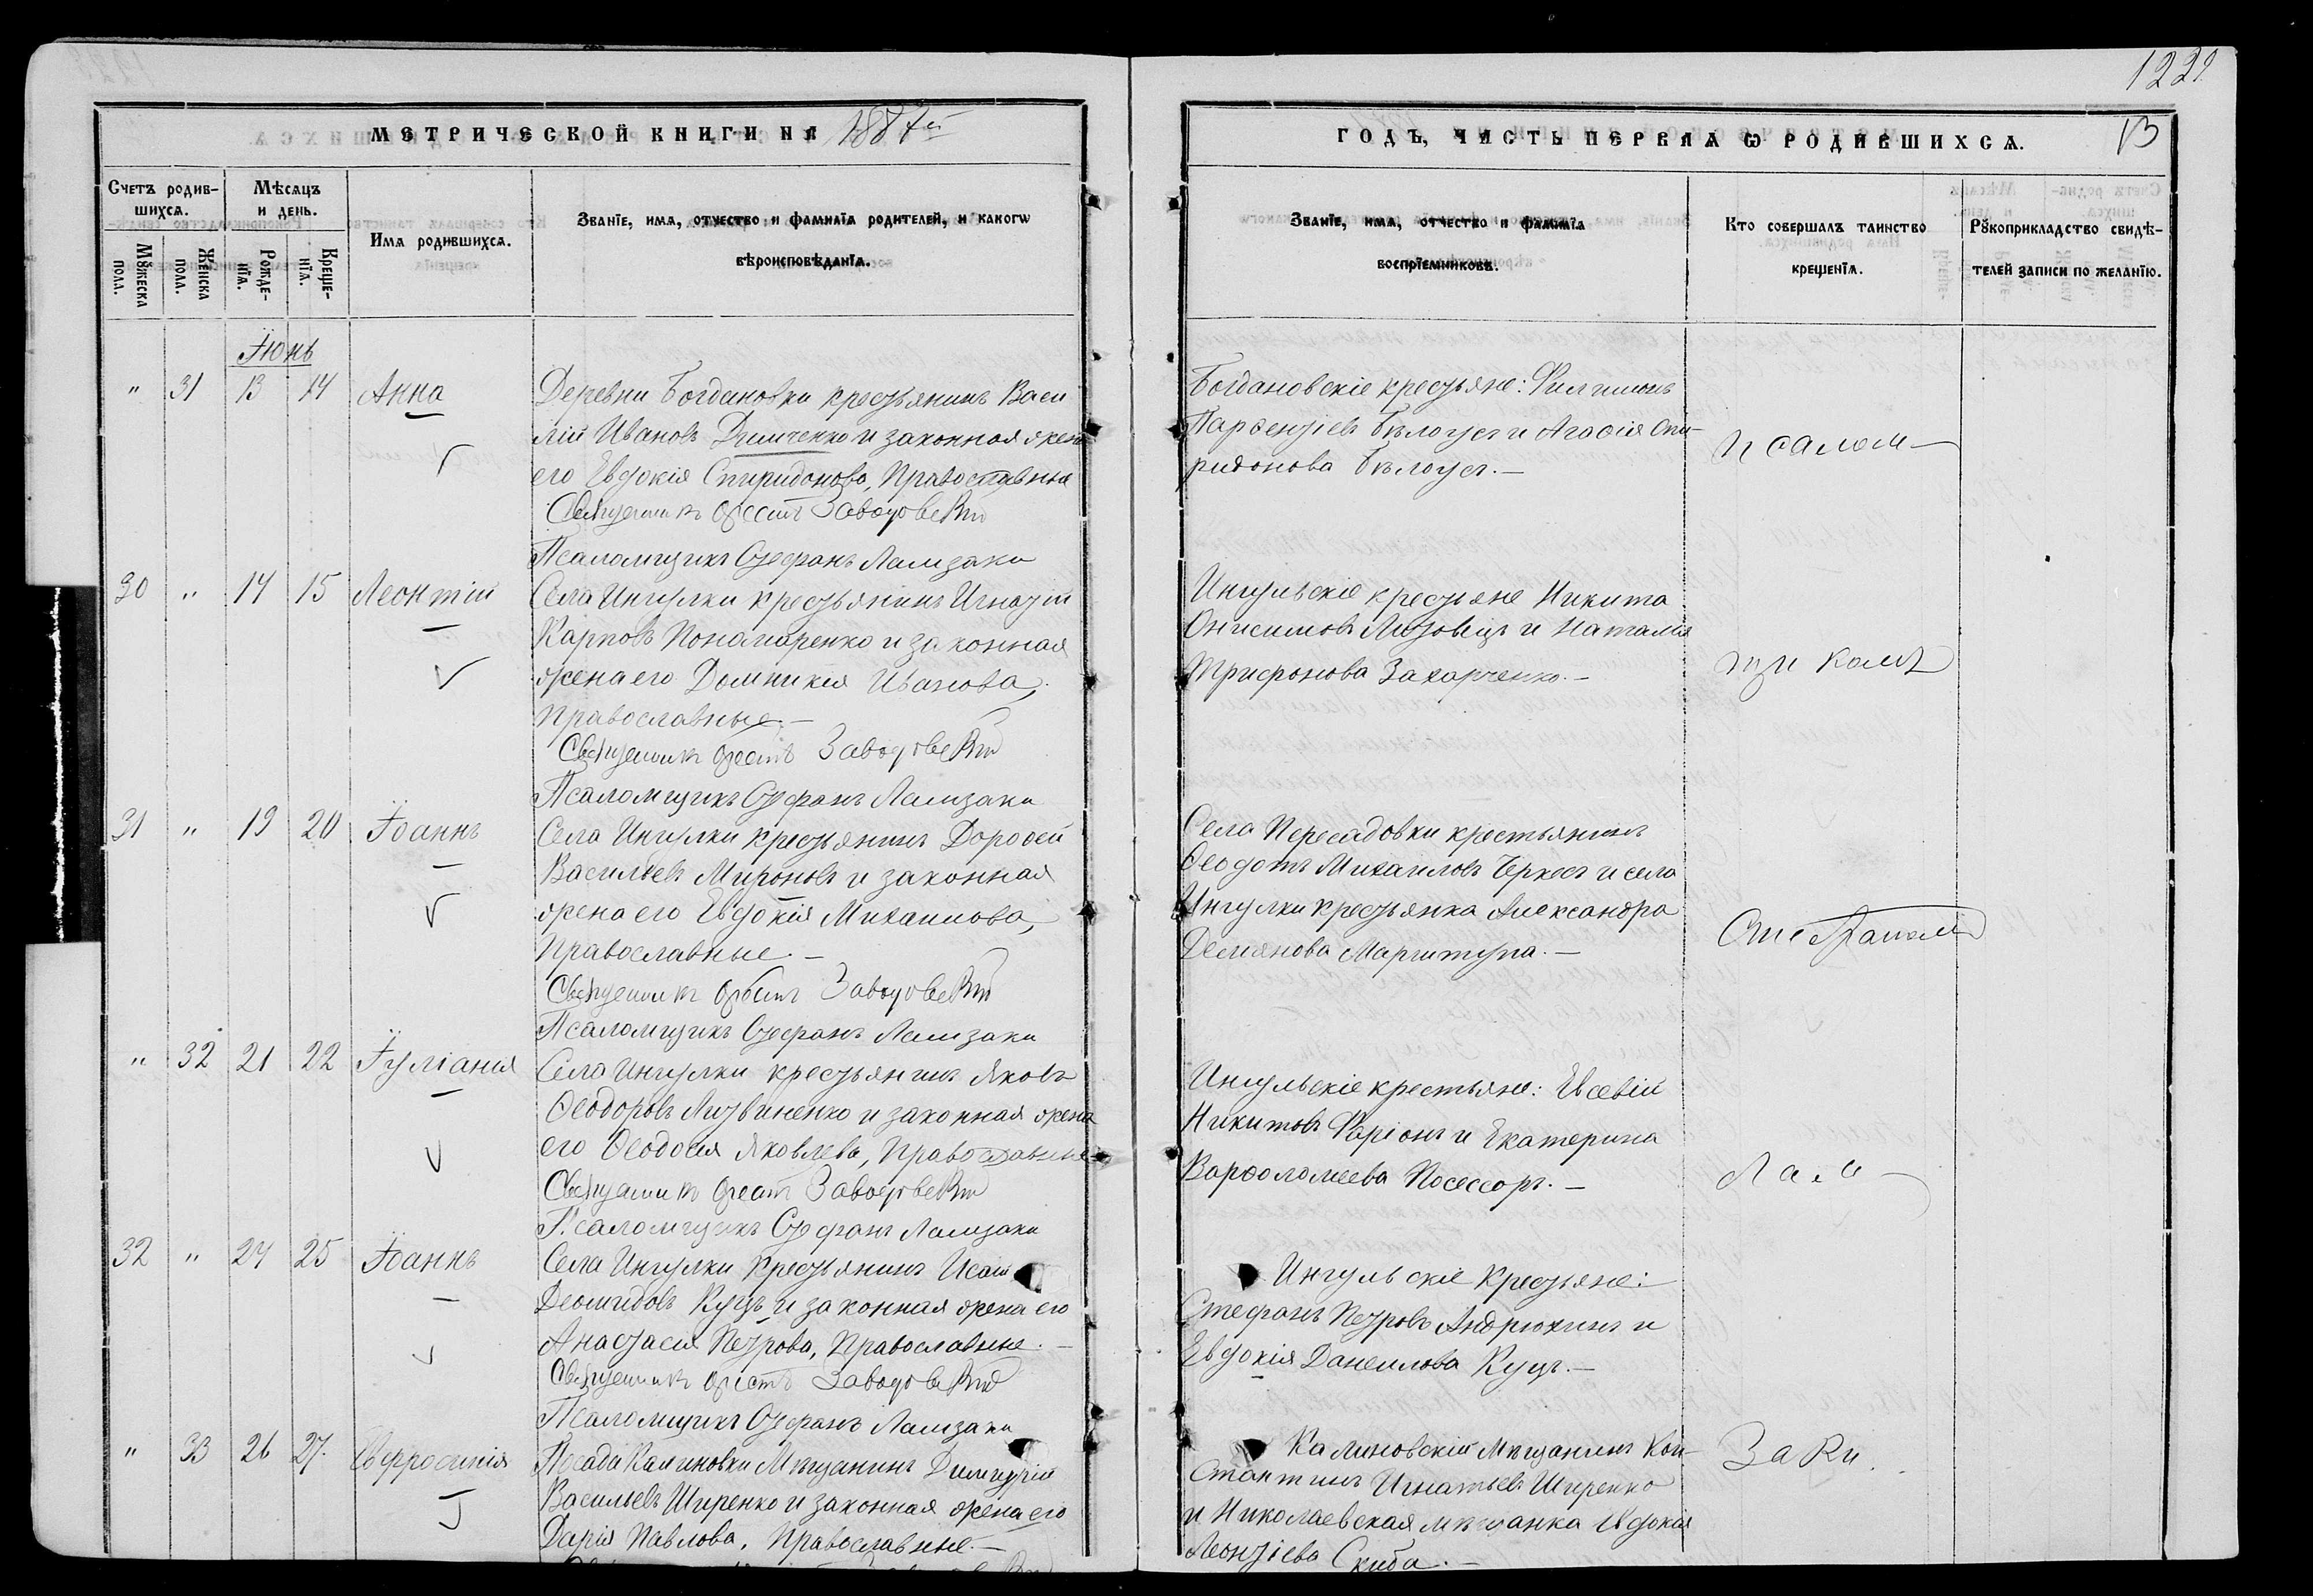 1229
МЕТРИЧЕСКОЙ КНИГИ НА 1887й
ГОДЪ, ЧАСТЬ ПЕРВАЯ Ѡ РОДИВШИХСѦ.
13
Счетъ родив-
шихсѧ.
Мѣсѧцъ
и день.
Мꙋжеска
пола.
Женска
пола.
Рожде-
нїѧ.
Креще-
нїѧ.
Имѧ родившихсѧ.
Званїе, имѧ, отчество и фамилїѧ родителей, и какогѡ
вѣроисповѣданїѧ.
Званїе, имѧ, отчество и фамилїѧ
воспрїемниковъ.
Кто совершалъ таинство
крещенїѧ.
Рꙋкоприкладство свидѣ-
телей записи по желанїю.
Іюнь
" 31 13 14 Анна
Деревни Богдановки крестьянинъ Васи
лій Ивановъ Димченко и законная жена
его Евдокія Спиридонова, Православные
Священникъ Орестъ Заводовскій
Псаломщикъ Стефанъ Ламзаки
Богдановскіе крестьяне: Филимонъ
Парѳентіевъ Бѣлоусъ и Агаѳія Спи-
ридонова Бѣлоусъ.—
Псалом—
30 " 14 15 Леонтій
Села Ингулки крестьянинъ Игнатій
Карповъ Понамаренко и законная
жена его Домникія Иванова,
Православные.—
Священникъ Орестъ Заводовскій
Псаломщикъ Стефанъ Ламзаки
Ингульскіе крестьяне Никита
Онисимовъ Лизовецъ и Наталія
Трифонова Захарченко.—
щикомъ
31 " 19 20 Іоаннъ
Села Ингулки крестьянинъ Дороѳей
Васильевъ Мироновъ и законная
жена его Евдокія Михаилова,
Православные.—
Священникъ Орестъ Заводовскій
Псаломщикъ Стефанъ Ламзаки
Села Пересадовки крестьянинъ
Ѳеодотъ Михаиловъ Черкесъ и села
Ингулки крестьянка Александра
Демянова Маргитура.—
Стефаномъ
" 32 21 22 Іуліанія
Села Ингулки крестьянинъ Яковъ
Ѳеодоровъ Литвиненко и законная жена
его Ѳеодосія Яковлева, Православные
Священникъ Орестъ Заводовскій
Псаломщикъ Стефанъ Ламзаки
Ингульскіе крестьяне: Евсевій
Никитовъ Фаріонъ и Екатерина
Варѳоломеева Посессоръ.—
Лам—
32 " 24 25 Іоаннъ
Села Ингулки крестьянинъ
Деомидовъ Куцъ и законная жена его
Анастасія Петрова, Православные.—
Священникъ Орестъ Заводовскій
Псаломщикъ Стефанъ Ламзаки
Ингульскіе крестьяне:
Стефанъ Петровъ Андрюхинъ и
Евдокія Данеилова Куцъ.—
" 33 26 27 Евфросинія
Посада Калиновки Мѣщанинъ Димитрій
Васильевъ Ширенко и законная жена его
Дарія Павлова, Православные.—
Калиновскій Мѣщанинъ Кон-
стантинъ Игнатьевъ Ширенко
и Николаевская мѣщанка Евдокія
Леонтіева Скиба.—
Заки.